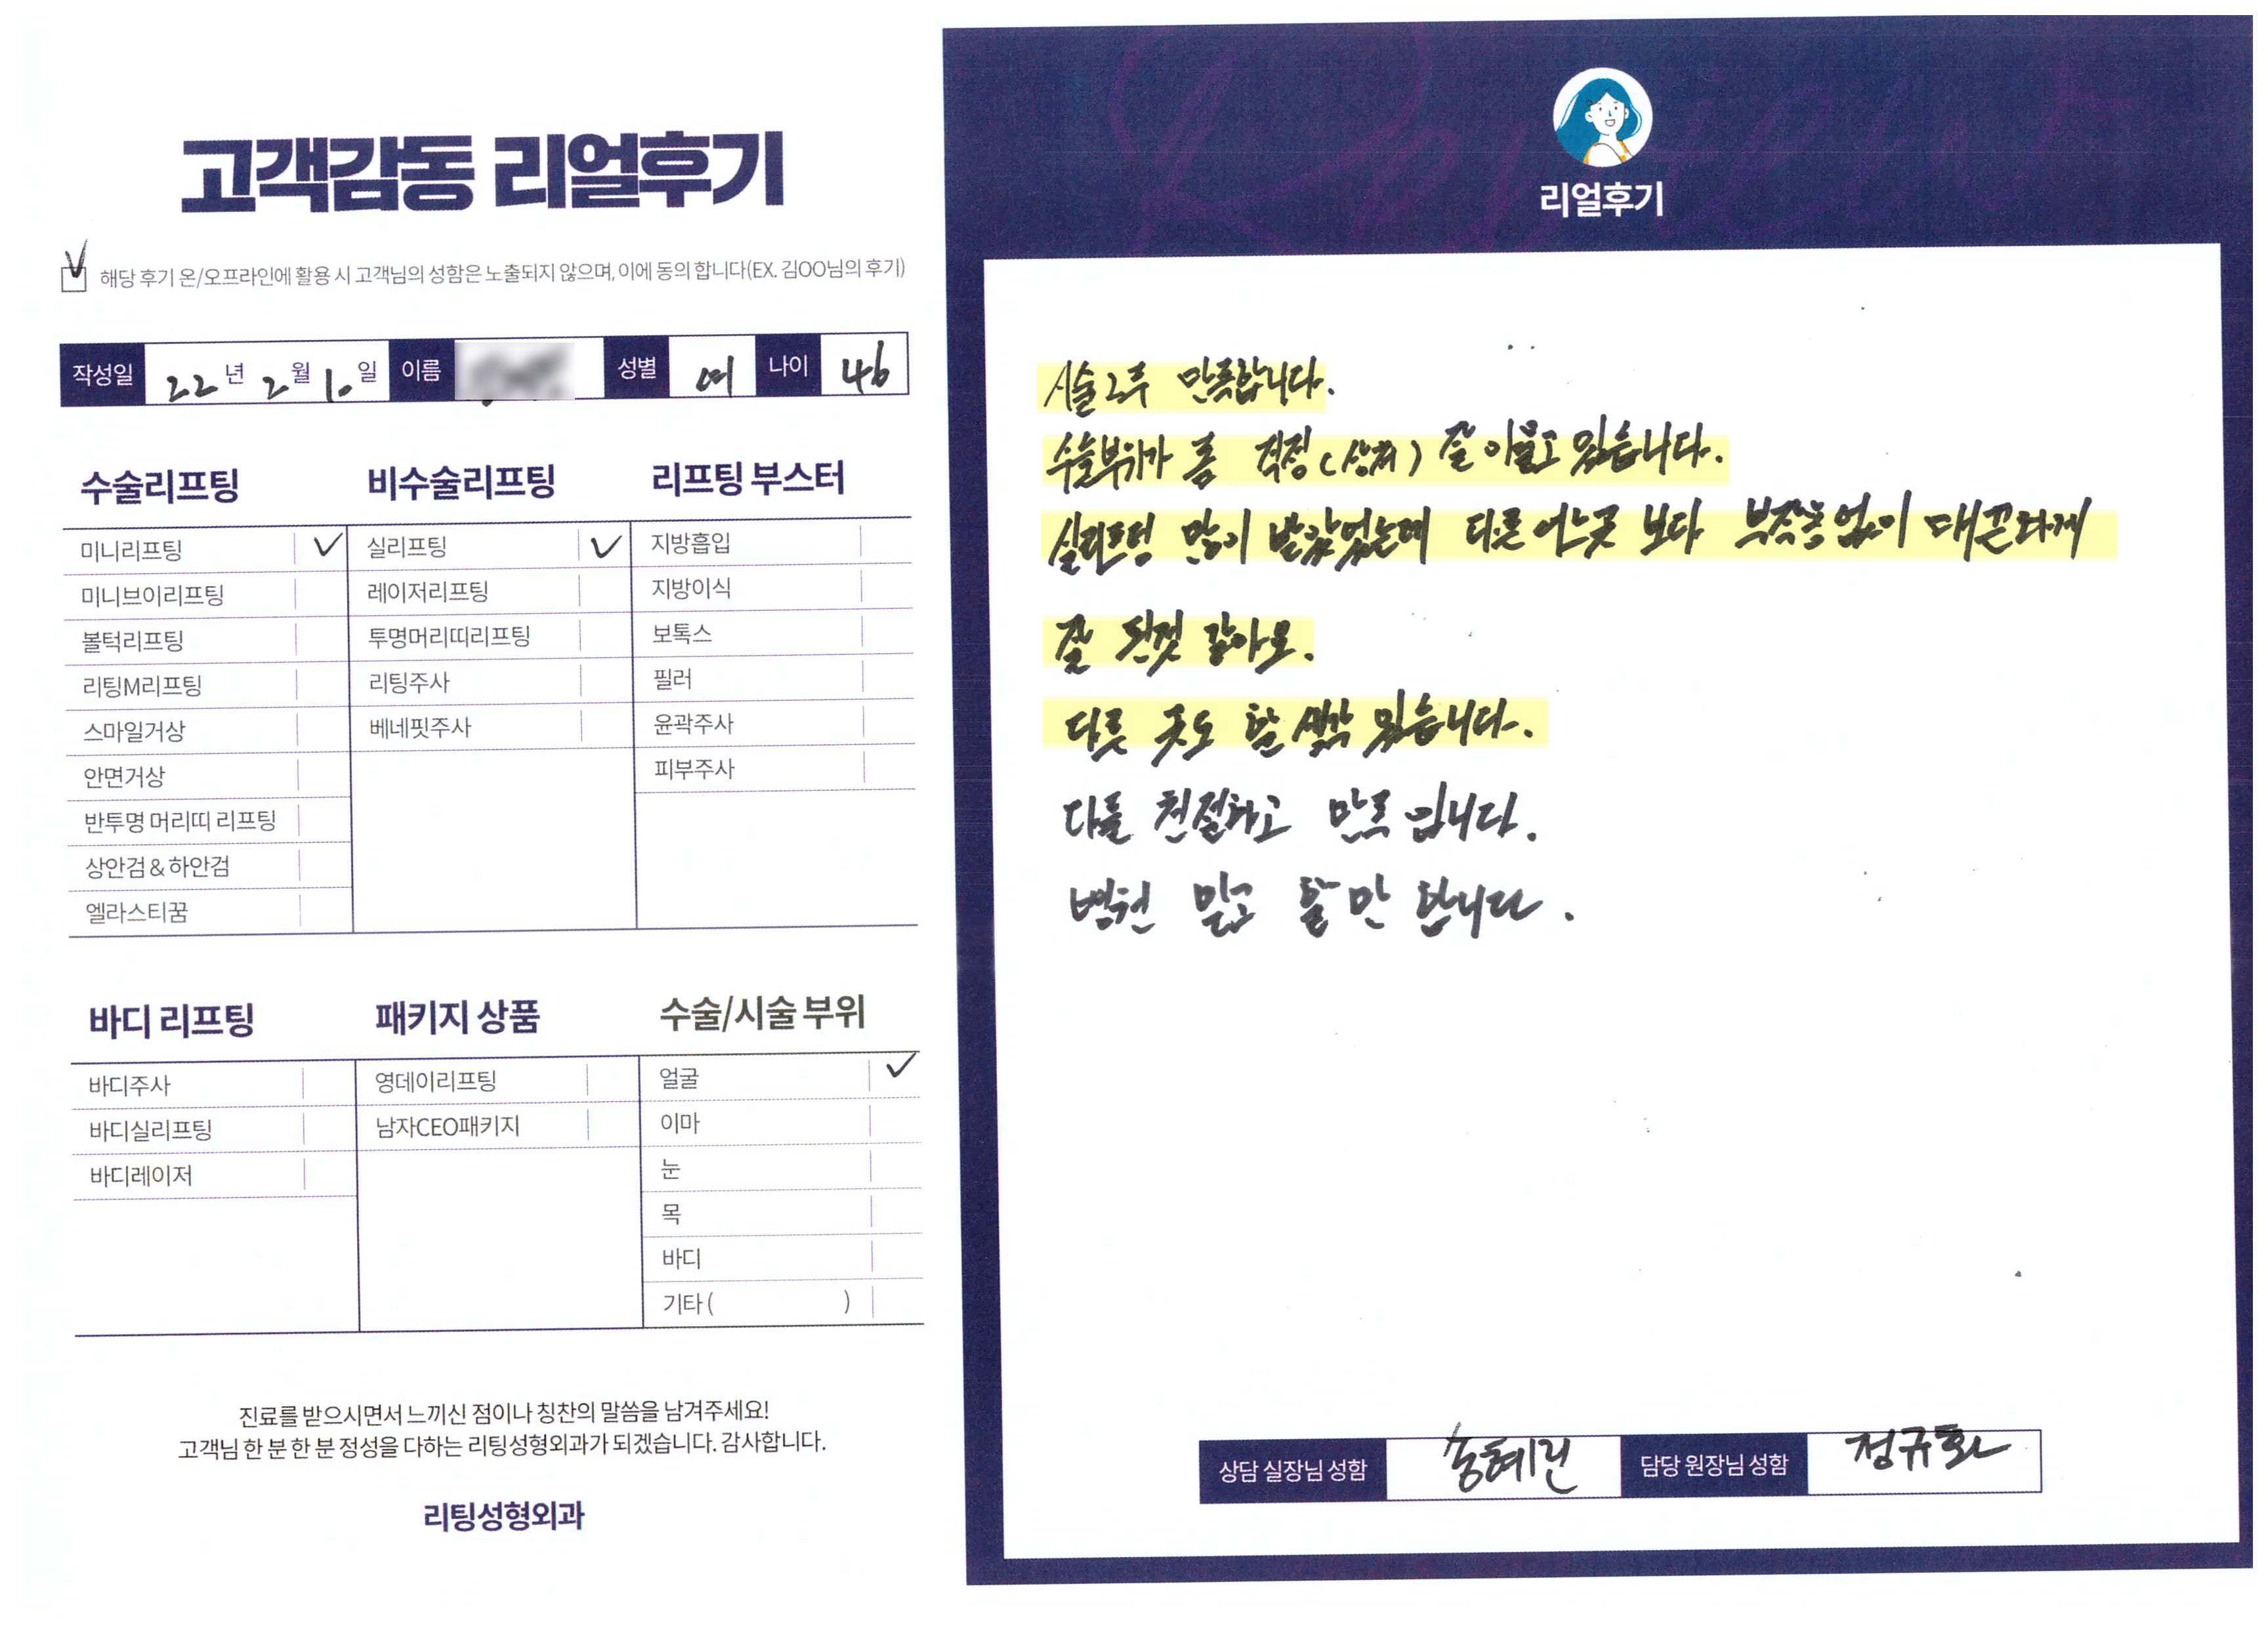 고객감동 리얼후기
해당 후기 온/오프라인에 활용 시 고객님의 성함은 노출되지 않으며, 이에 동의 합니다(EX. 김OO님의 후기)
작성일 22년 2월 10일 이름 성별 여 나이 46
수술리프팅
미니리프팅
미니브이리프팅
볼턱리프팅
리팅M리프팅
스마일거상
안면거상
반투명 머리띠 리프팅
상안검 & 하안검
엘라스티꿈
비수술리프팅
실리프팅
레이저리프팅
투명머리띠리프팅
리팅주사
베네핏주사
리프팅 부스터
지방흡입
지방이식
보톡스
필러
윤곽주사
피부주사
바디 리프팅
바디주사
바디실리프팅
바디레이저
패키지 상품
영데이리프팅
남자CEO패키지
수술/시술 부위
얼굴
이마
눈
목
바디
기타 ( )
진료를 받으시면서 느끼신 점이나 칭찬의 말씀을 남겨주세요!
고객님 한 분 한 분 정성을 다하는 리팅성형외과가 되겠습니다. 감사합니다.
리팅성형외과
리얼후기
시술 2주 만족합니다.
수술부위가 좀 걱정(상처) 잘 아물고 있습니다.
실리프팅 많이 받았었는데 다른 어느곳 보다 부작용 없이 매끈하게
잘 된것 같아요.
다른 곳도 할 생각 있습니다.
다들 친절하고 만족 입니다.
병원 믿고 할만 합니다.
상담 실장님 성함 송혜린 담당 원장님 성함 정규화